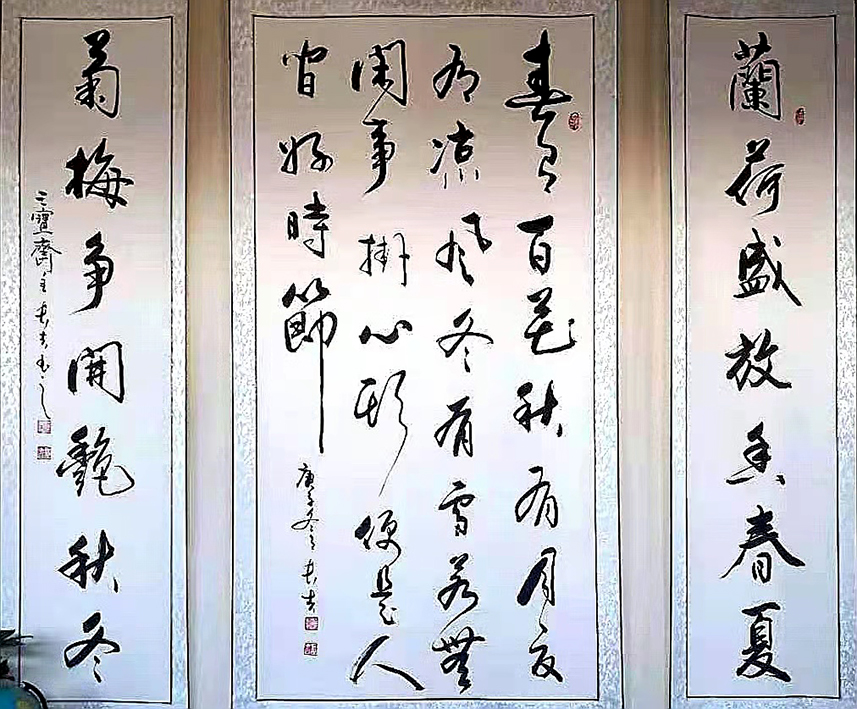 蘭荷盛放香春夏
春有百花秋有月夏
有凉风冬有雪若無
閑事掛心頭便是人
間好時節
庚子冬
菊梅争開艷秋冬
寶齋主